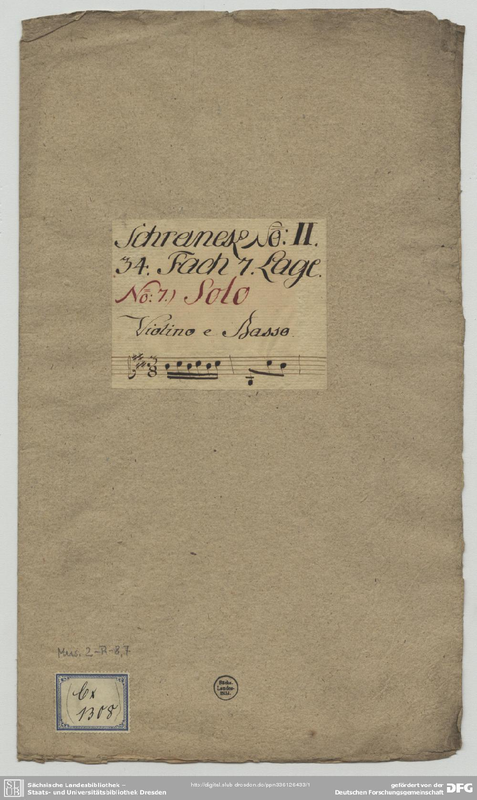 Schranck No: II.
34. Fach 7. Lage.
No: 7.) Solo
Violino e Basso
3
8
Mus. 2-R-8,7
Cx
1308
Sächs.
Landes-
Bibl.
SLUB
Sächsische Landesbibliothek –
Staats- und Universitätsbibliothek Dresden
gefördert von der
Deutschen Forschungsgemeinschaft
DFG